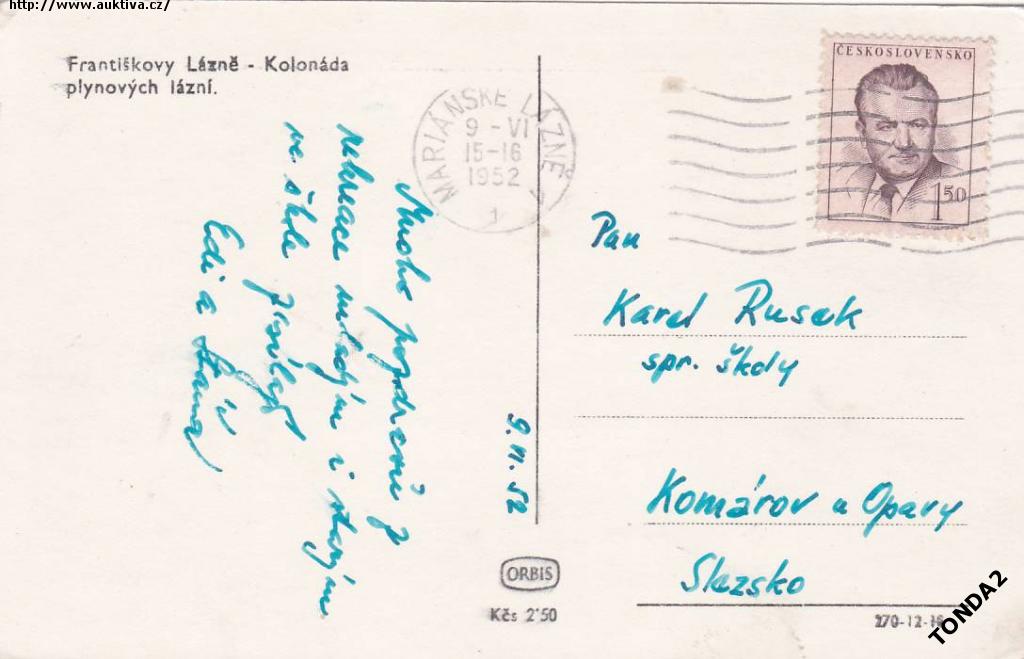 http://www.auktiva.cz/
Františkovy Lázně - Kolonáda
plynových lázní.
MARIÁNSKÉ LÁZNĚ
9 - VI
15-16
1952
1
ČESKOSLOVENSKO
1 50
Mnoho pozdravů z
rekreace mladým i starým
ve škole posílají
Edi a
9.VI.52
Pan
Karel Rusek
spr. školy
Komárov u Opavy
Slezsko
ORBIS
Kčs 2'50
270-12-18
TONDA2